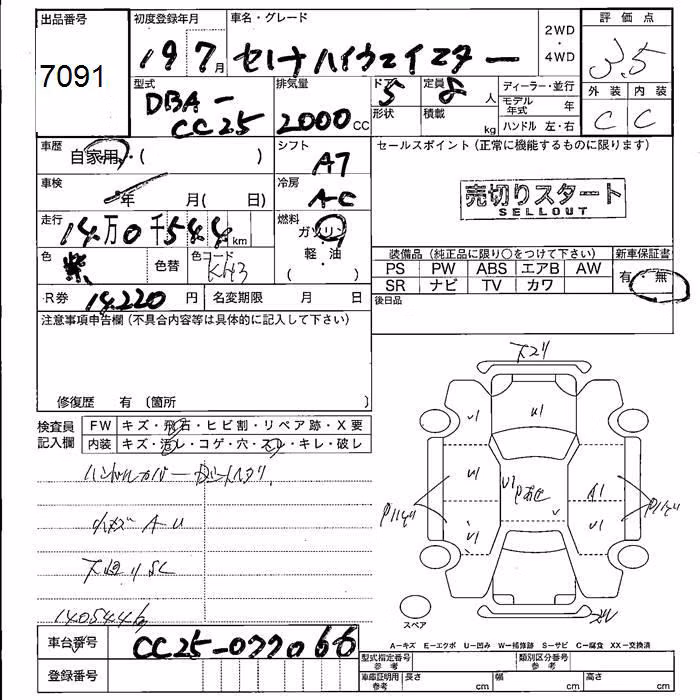 出品番号 初度登録年月 車名・グレード 2WD ・ 4WD 評価点
7091 19 7月 セレナハイウェイスター 3.5
型式 排気量 ドア 定員 ディーラー・並行 外装 内装
DBA-CC25 2000 CC 5 8人 モデル年式 年 C C
形状 積載 kg ハンドル 左・右
車歴 自家用・( ) シフト AT セールスポイント(正常に機能するものに限ります)
車検 年 月( 日) 冷房 A-C 売切りスタート
SELLOUT
走行 14万0千544km 燃料 ガソリン 軽・油 ( ・ )
色 紫 色替 色コード KH3 装備品(純正品に限り○をつけて下さい) 新車保証書
PS PW ABS エアB AW 有・無
SR ナビ TV カワ
R券 14,220円 名変期限 月 日 後日品
注意事項申告欄(不具合内容等は具体的に記入して下さい)
修復歴 有 (箇所 )
検査員記入欄 FW キズ・飛石・ヒビ割・リペア跡・X要
内装 キズ・汚レ・コゲ・穴・スレ・キレ・破レ
ハンドルカバー
小キズ A U
下廻りSC
140544
下廻り
U1 U1 U1 U1
A1
U1 U1
スペア
A-キズ E-エクボ U-凹み W-補修跡 S-サビ C-腐食 XX-交換済
車台番号 CC25-077066
登録番号
型式指定番号 参考 類別区分番号 参考
車庫証明用 参考 長さ cm 幅 cm 高さ cm